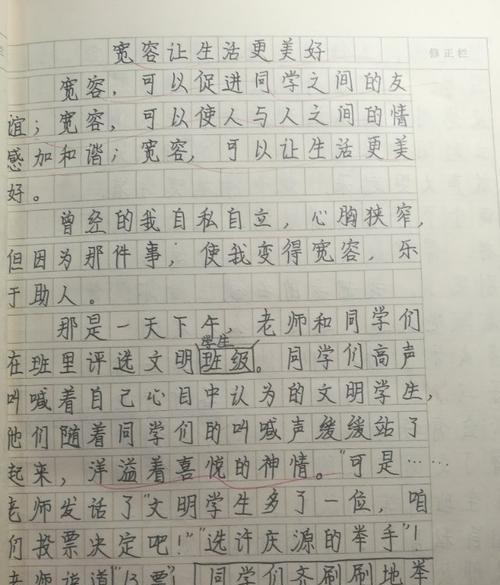 宽容让生活更美好
修正栏
宽容，可以促进同学之间的友
谊；宽容，可以使人与人之间的情
感加和谐；宽容，可以让生活更美
好。
曾经的我自私自立，心胸狭窄，
但因为那件事，使我变得宽容，乐
于助人。
那是一天下午，老师和同学们
学生
在班里评选文明班级。同学们高声
叫喊着自己心目中认为的文明学生，
他们随着同学们的叫喊声缓缓站了
起来，洋溢着喜悦的神情。"可是……
老师发话了"文明学生多了一位，咱
们投票决定吧！""选许庆源的举手"！
老师说道"13票"同学们齐刷刷地举